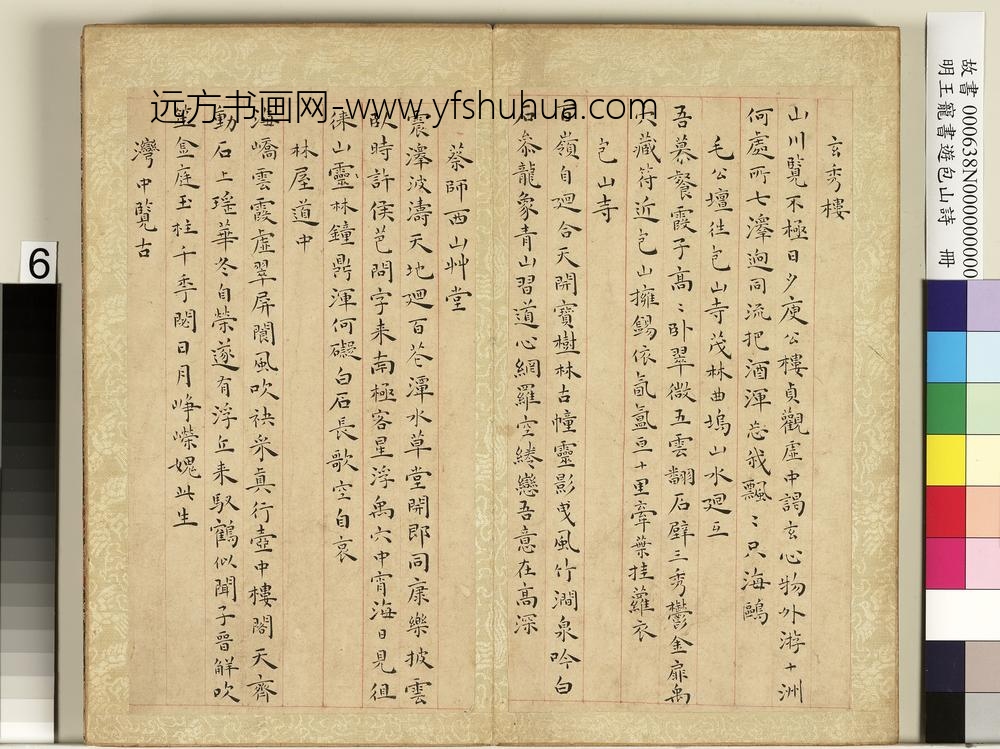 玄秀樓
山川覽不極日夕庾公樓貞觀虛中謁玄心物外游十洲
何處所七澤迥同流把酒渾忘我飄〻只海鷗
毛公壇往包山寺茂林曲塢山水廻互
吾慕餐霞子高〻卧翠微五雲翻石壁三秀鬱金扉禹
穴藏符近包山擁錫依氤氳亙十里牽葉挂蘿衣
包山寺
嶺自廻合天開寶樹林古幢靈影曳風竹澗泉吟白
石參龍象青山習道心網羅空綣戀吾意在高深
蔡師西山艸堂
震澤波濤天地廻百花潭水草堂開郎同康樂披雲
卧時許侯芭問字來南極客星浮禹穴中宵海日見徂
徠山靈林鐘鼎渾何礙白石長歌空自哀
林屋道中
海嶠雲霞虛翠屏閬風吹袂采真行壺中樓閣天齊
動石上瑤華冬自榮遂有浮丘來馭鶴似聞子晉解吹
笙盆庭玉柱千季閟日月崢嶸媿此生
灣中覽古
远方书画网-www.yfshuhua.com
故書 000638N000000000
明王寵書遊包山詩 冊
6